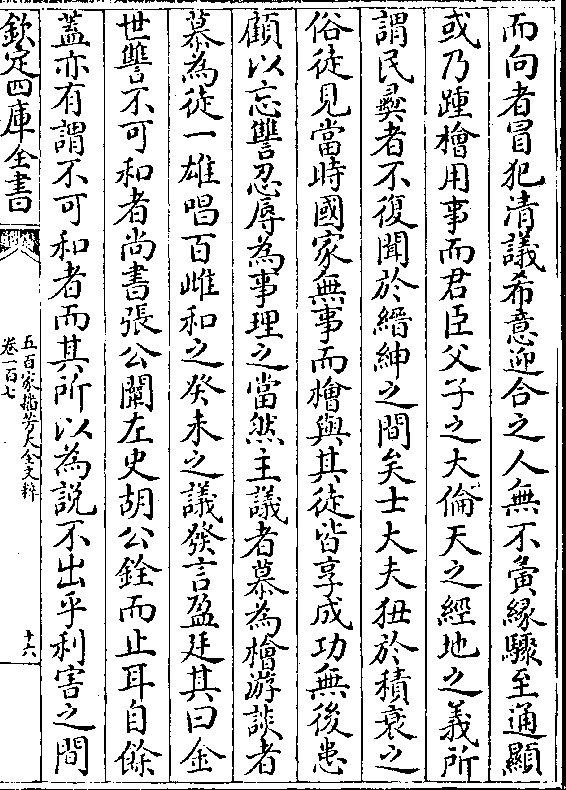 而向者冒犯清議希意迎合之人無不夤緣驟至通顯
或乃踵檜用事而君臣父子之大倫天之經地之義所
謂民彞者不復聞於縉紳之間矣士大夫狃於積衰之
俗徒見當時國家無事而檜與其徒皆享成功無後患
顧以忘讐忍辱為事理之當然主議者慕為檜游談者
慕為徒一雄唱百雌和之癸未之議發言盈廷其曰金
世讐不可和者尚書張公闡左史胡公銓而止耳自餘
蓋亦有謂不可和者而其所以為説不出乎利害之間
欽定四庫全書
五百家播芳大全文粹
卷一百七
十六